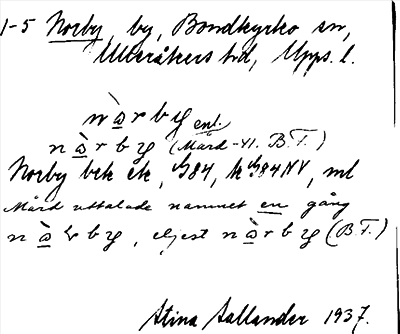 1-5 Norby, by, Bondkyrko sn,
Ulleråkers hd, Upps. l.
nò̱rby enl.
nò̱rby (Mård -41. B.T.)
Norby bek ek, G84, k G84NV, ml
Mård uttalade namnet en gång
nò̱rby, eljest nò̱rby (B.T.)
Stina Sallander 1937.